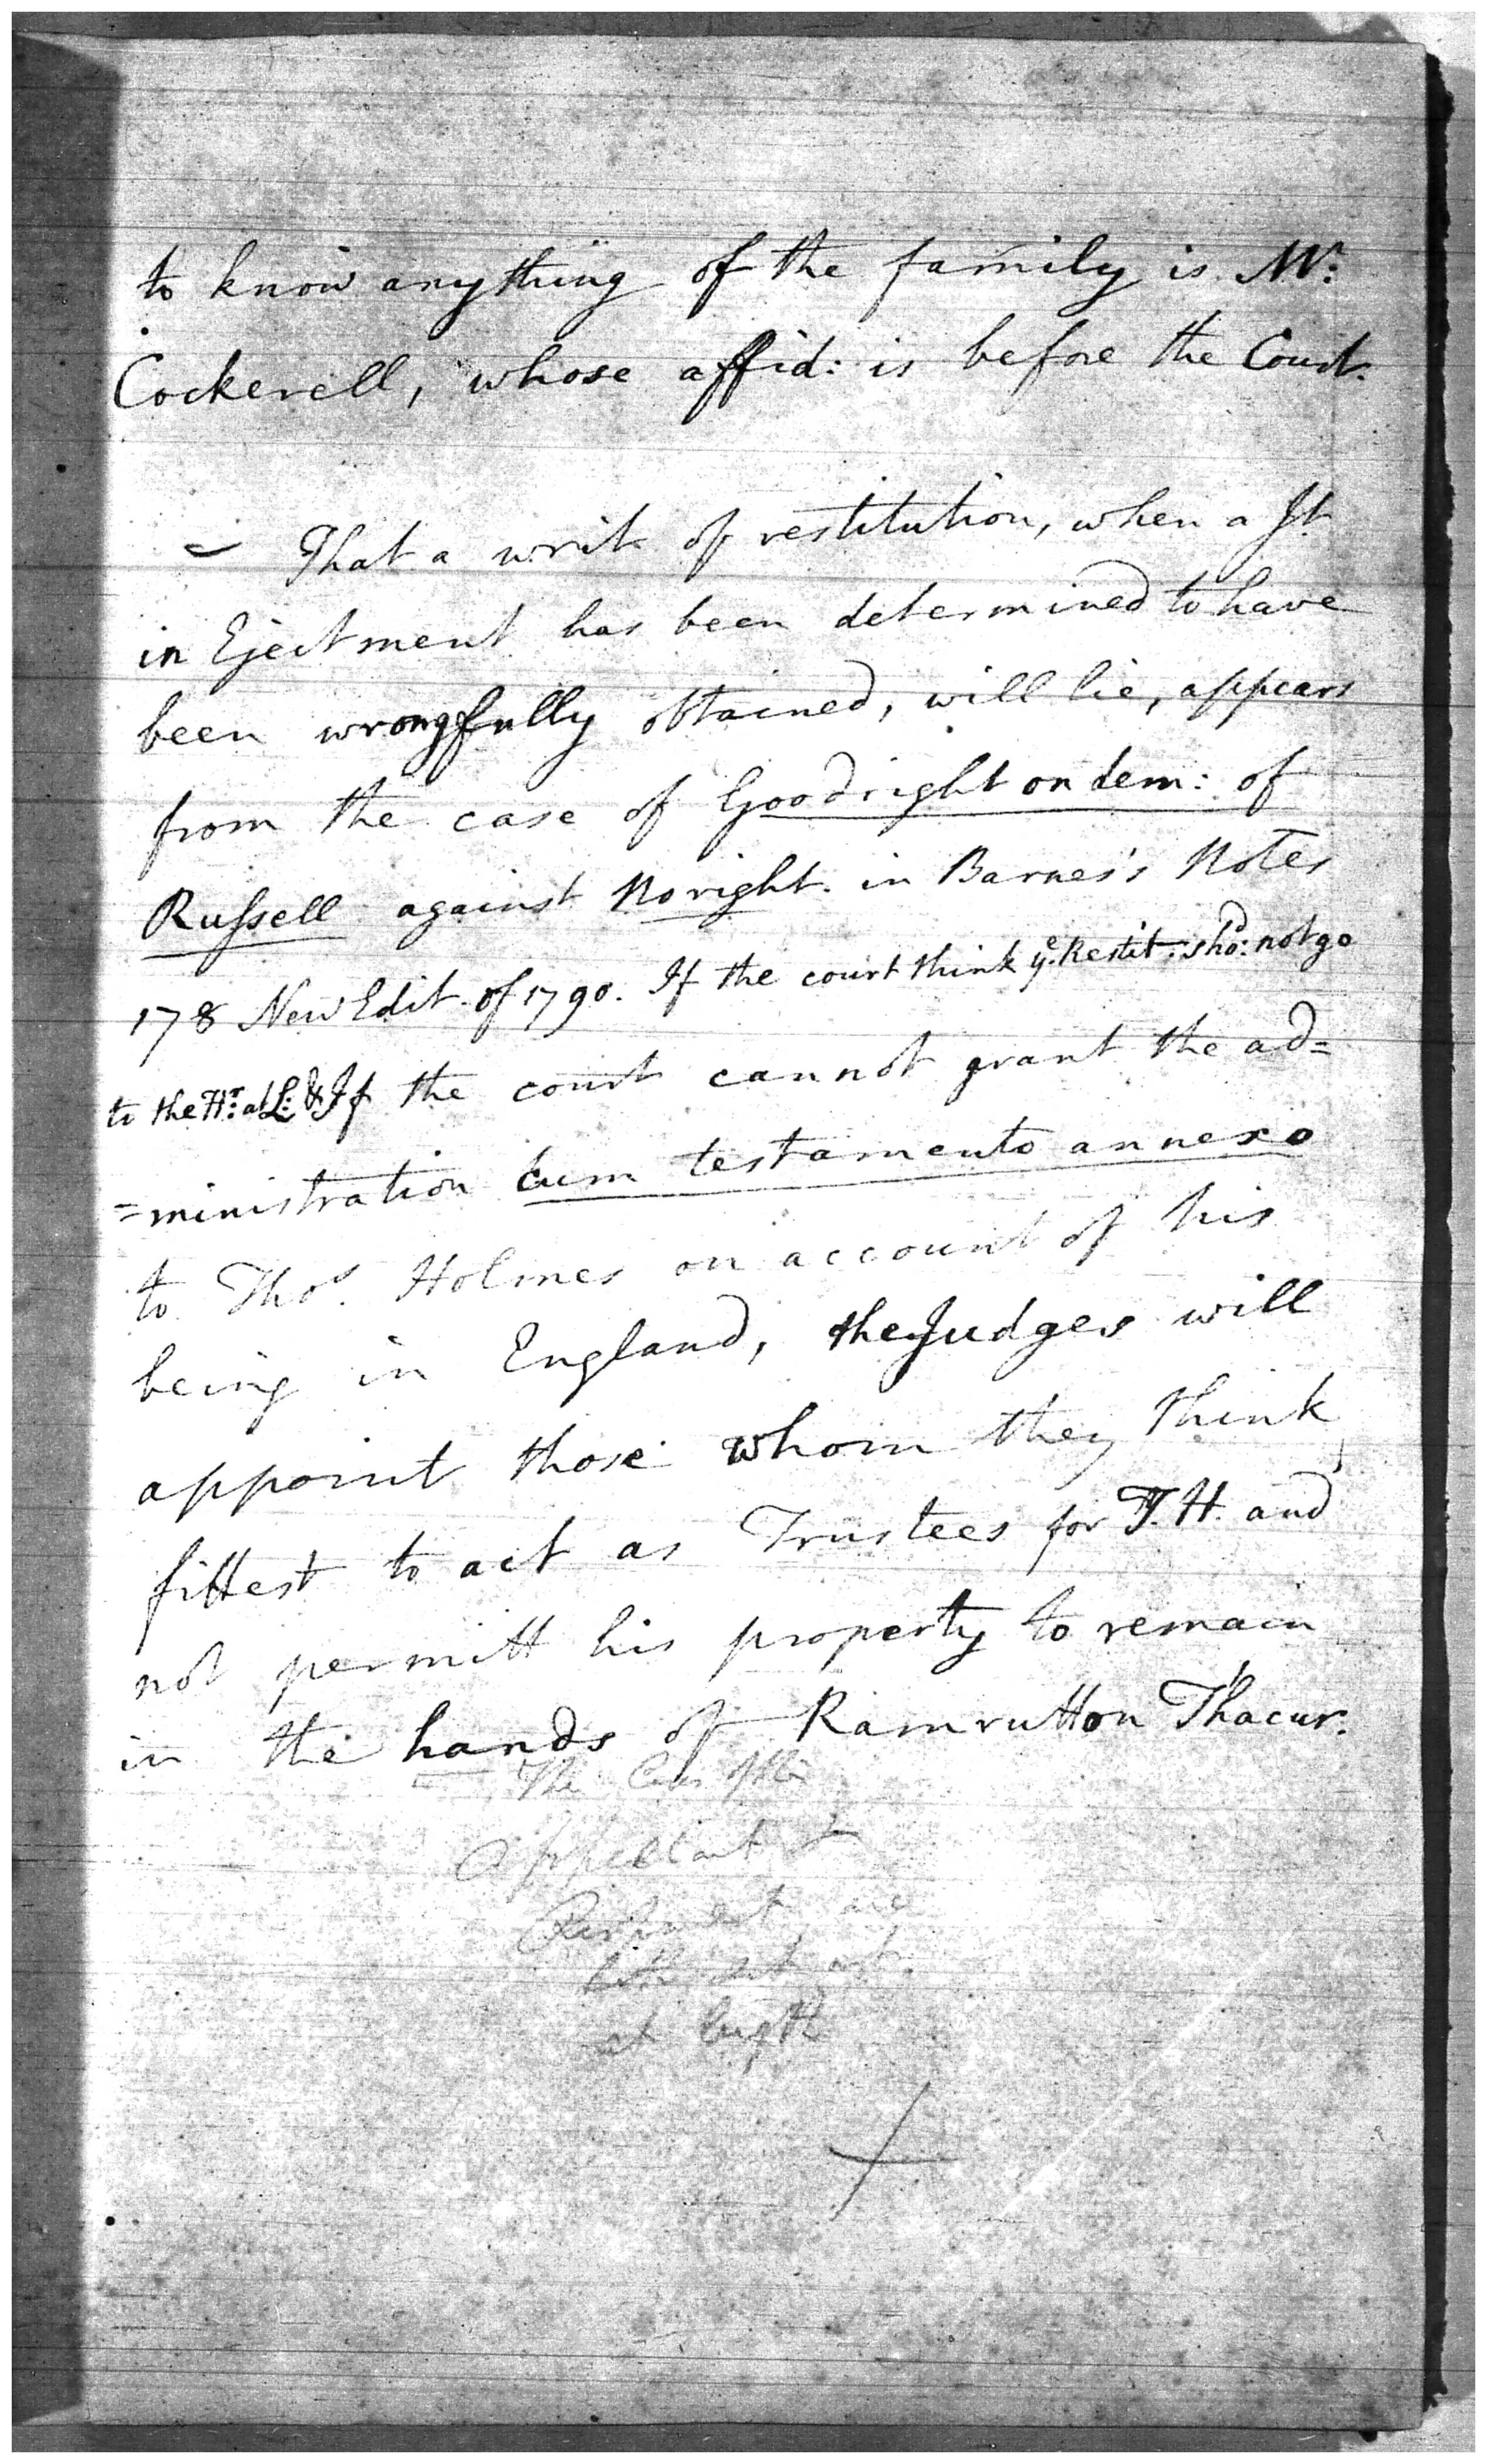 to know anything of the family is Mr:
Cockerell, whose affid: is before the Court.
- That a writ of restitution, when a Jt
in Ejectment has been determined to have
been wrongfully obtained, will lie, appears
from the case of Goodright on dem: of
Russell against Noright. in Barnes's Notes
178 New Edit. of 1790. If the court think ye. Restit: shod: not go
to the Hr: at L: & If the court cannot grant the ad=
=ministration cum testamento annexo
to Thos. Holmes on account of his
being in England, the Judges will
appoint those whom they think
fittest to act as Trustees for T.H. and
not permitt his property to remain
in the hands of Ramrutton Thacur.
The Cases of the
Appellant &
Respondent are
both set out
at length